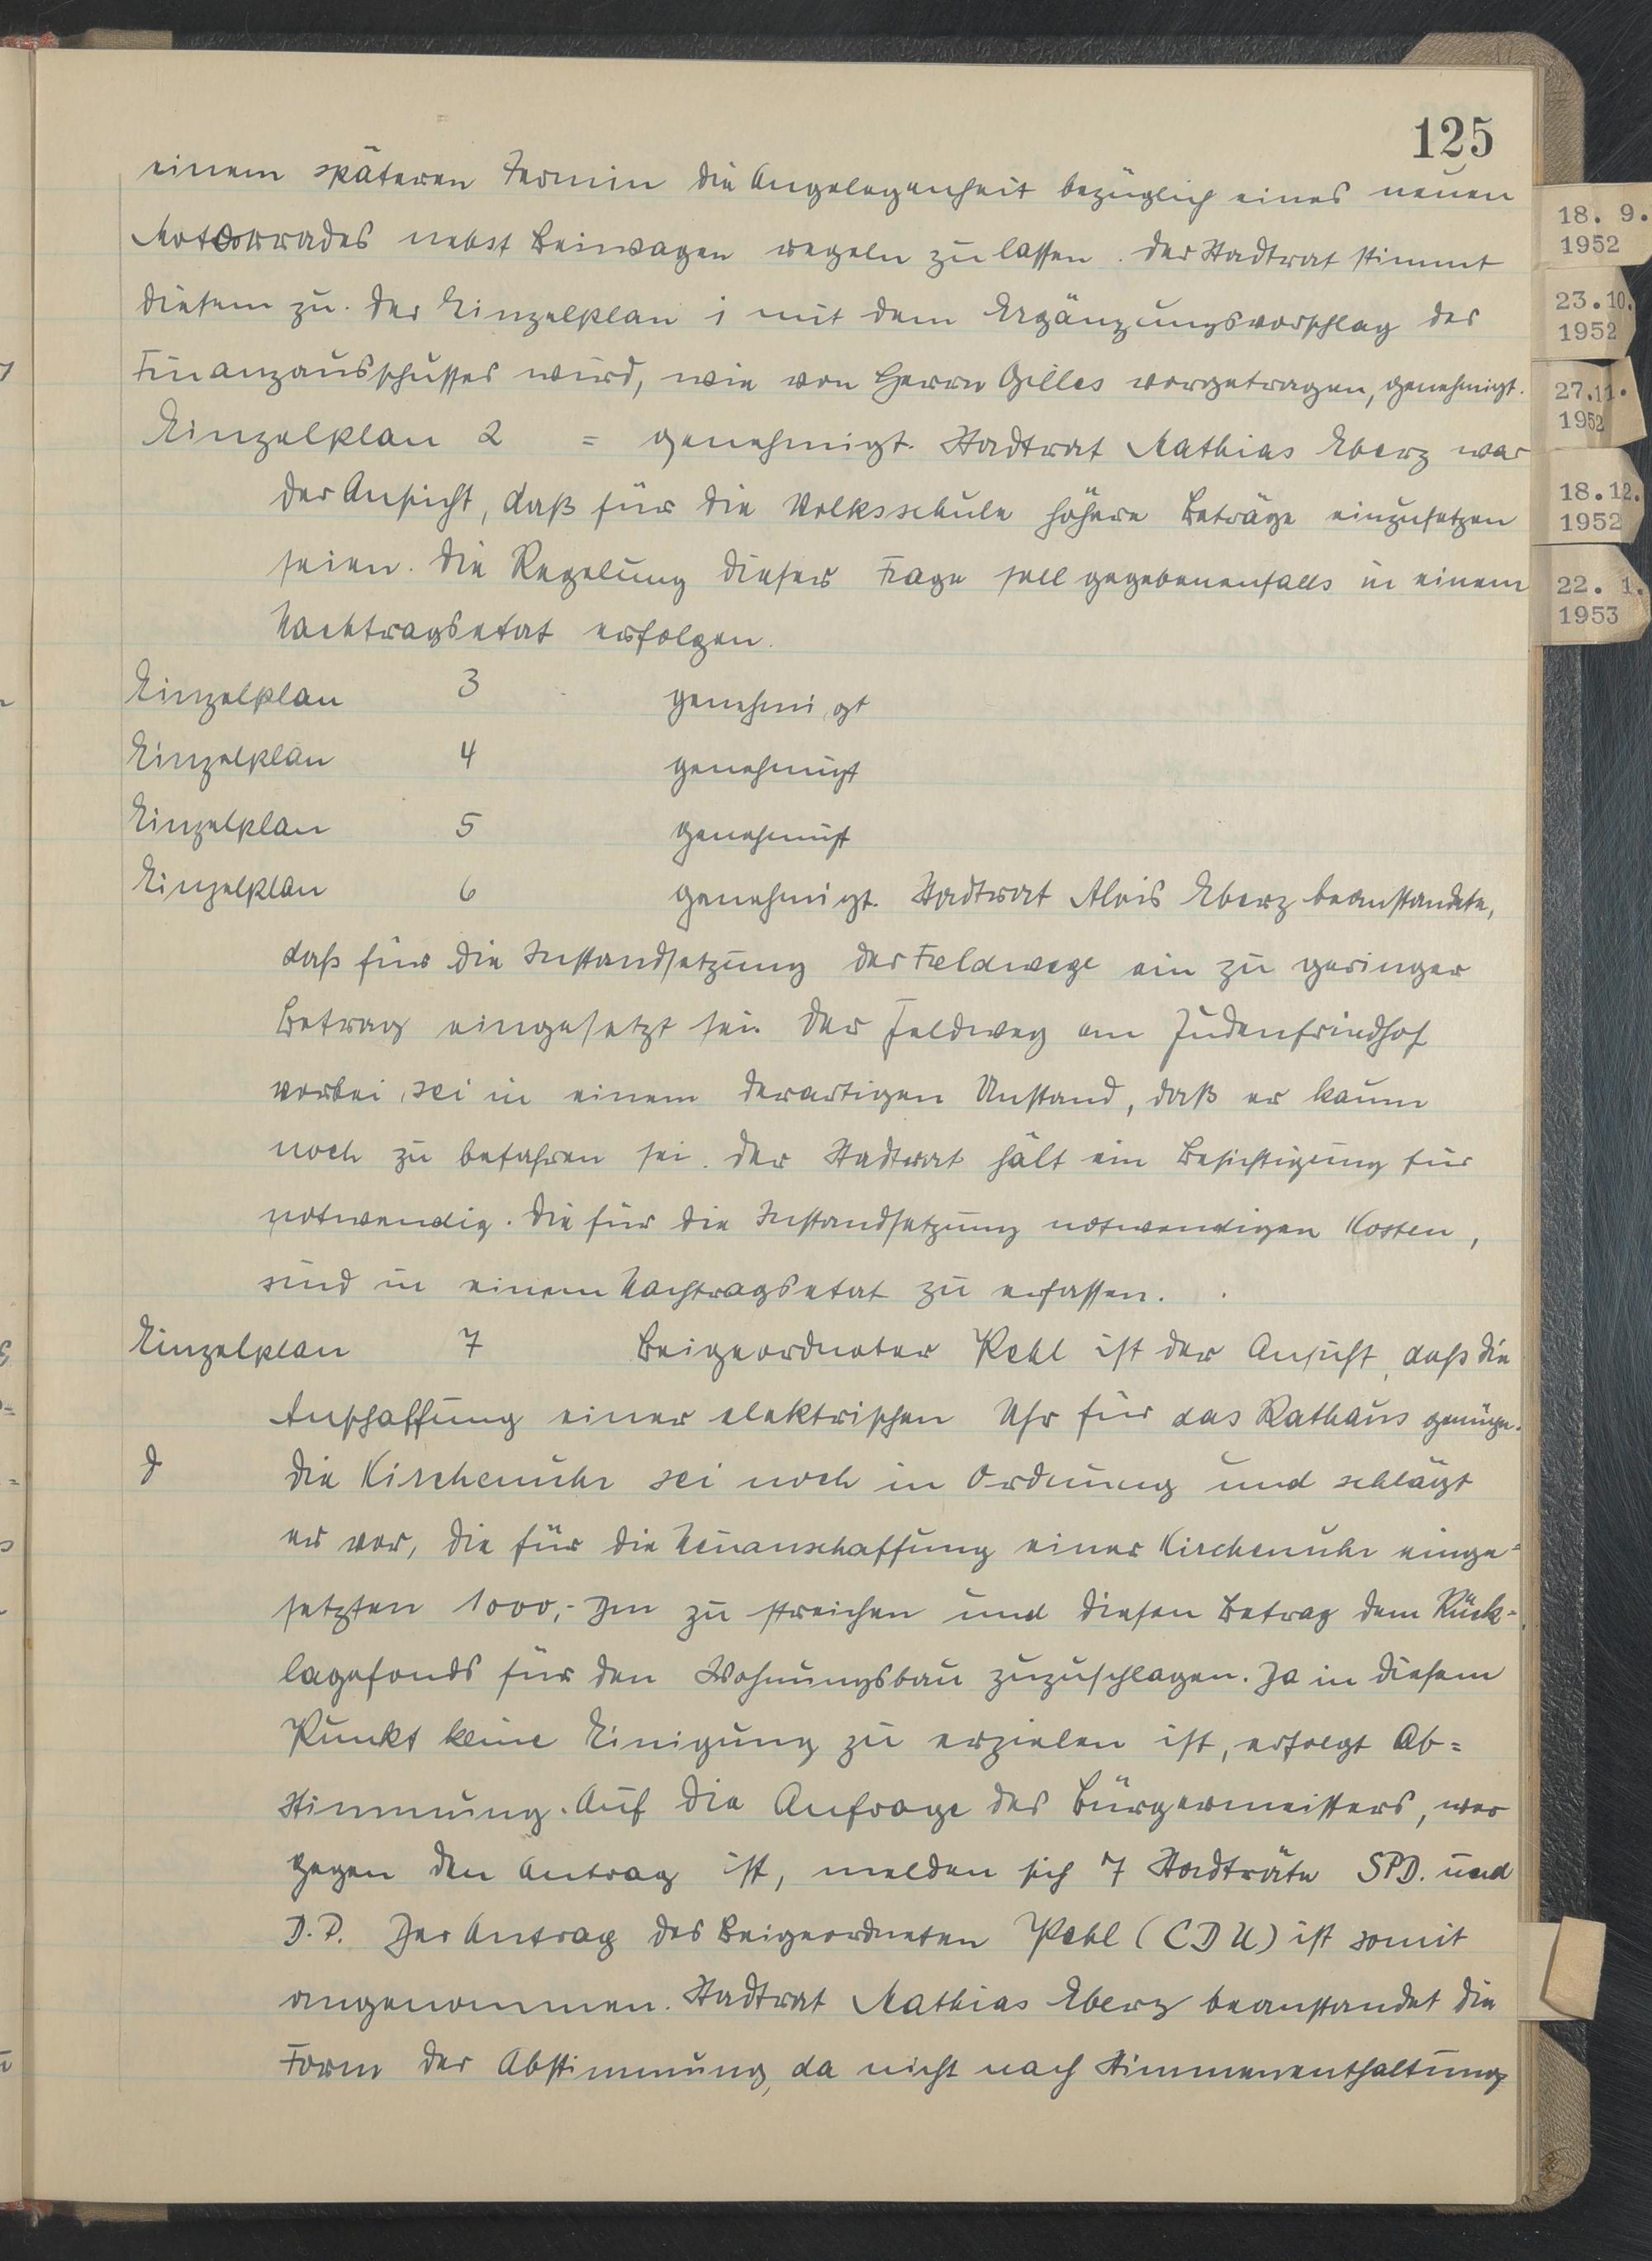 125
einem späteren Termin die Angelegenheit bezüglich eines neuen
Motorrades nebst Beiwagen regeln zu lassen. Der Stadtrat stimmt
diesem zu. Der Einzelplan 1 mit dem Ergänzungsvorschlag des
Finanzausschusses wird, wie von Herrn Gilles vorgetragen, genehmigt.
Einzelplan 2 = genehmigt. Stadtrat Mathias Eberz war
der Ansicht, daß für die Volksschule höhere Beträge einzusetzen
seien. Die Regelung dieser Frage soll gegebenenfalls in einem
Nachtragsetat erfolgen.
Einzelplan 3 genehmigt
Einzelplan 4 genehmigt
Einzelplan 5 genehmigt
Einzelplan 6 genehmigt. Stadtrat Alois Eberz beanstandete,
daß für die Instandsetzung der Feldwege ein zu geringer
Betrag eingesetzt sei. Der Feldweg am Judenfriedhof
vorbei, sei in einem derartigen Unstand, daß er kaum
noch zu befahren sei. Der Stadtrat hält ein Besichtigung für
notwendig. Die für die Instandsetzung notwendigen Kosten,
sind in einem Nachtragsetat zu erfassen.
Einzelplan 7 Beigeordneter Pehl ist der Ansicht, daß die
Anschaffung einer elektrischen Uhr für das Rathaus genüge.
d Die Kirchenuhr sei noch in Ordnung und schlägt
er vor, die für die Neuanschaffung einer Kirchenuhr einge=
setzten 1000,- Dm zu streichen und diesen Betrag dem Rück=
lagefonds für den Wohnungsbau zuzuschlagen. Da in diesem
Punkt keine Einigung zu erzielen ist, erfolgt Ab=
stimmung. Auf die Anfrage des Bürgermeisters, wer
gegen den Antrag ist, melden sich 7 Stadträte SPD. und
D.P. Der Antrag des Beigeordneten Pehl (CDU) ist somit
angenommen. Stadtrat Mathias Eberz beanstandet die
Form der Abstimmung, da nicht nach Stimmenenthaltung
18. 9.
1952
23.10.
1952
27.11.
1952
18.12.
1952
22. 1.
1953